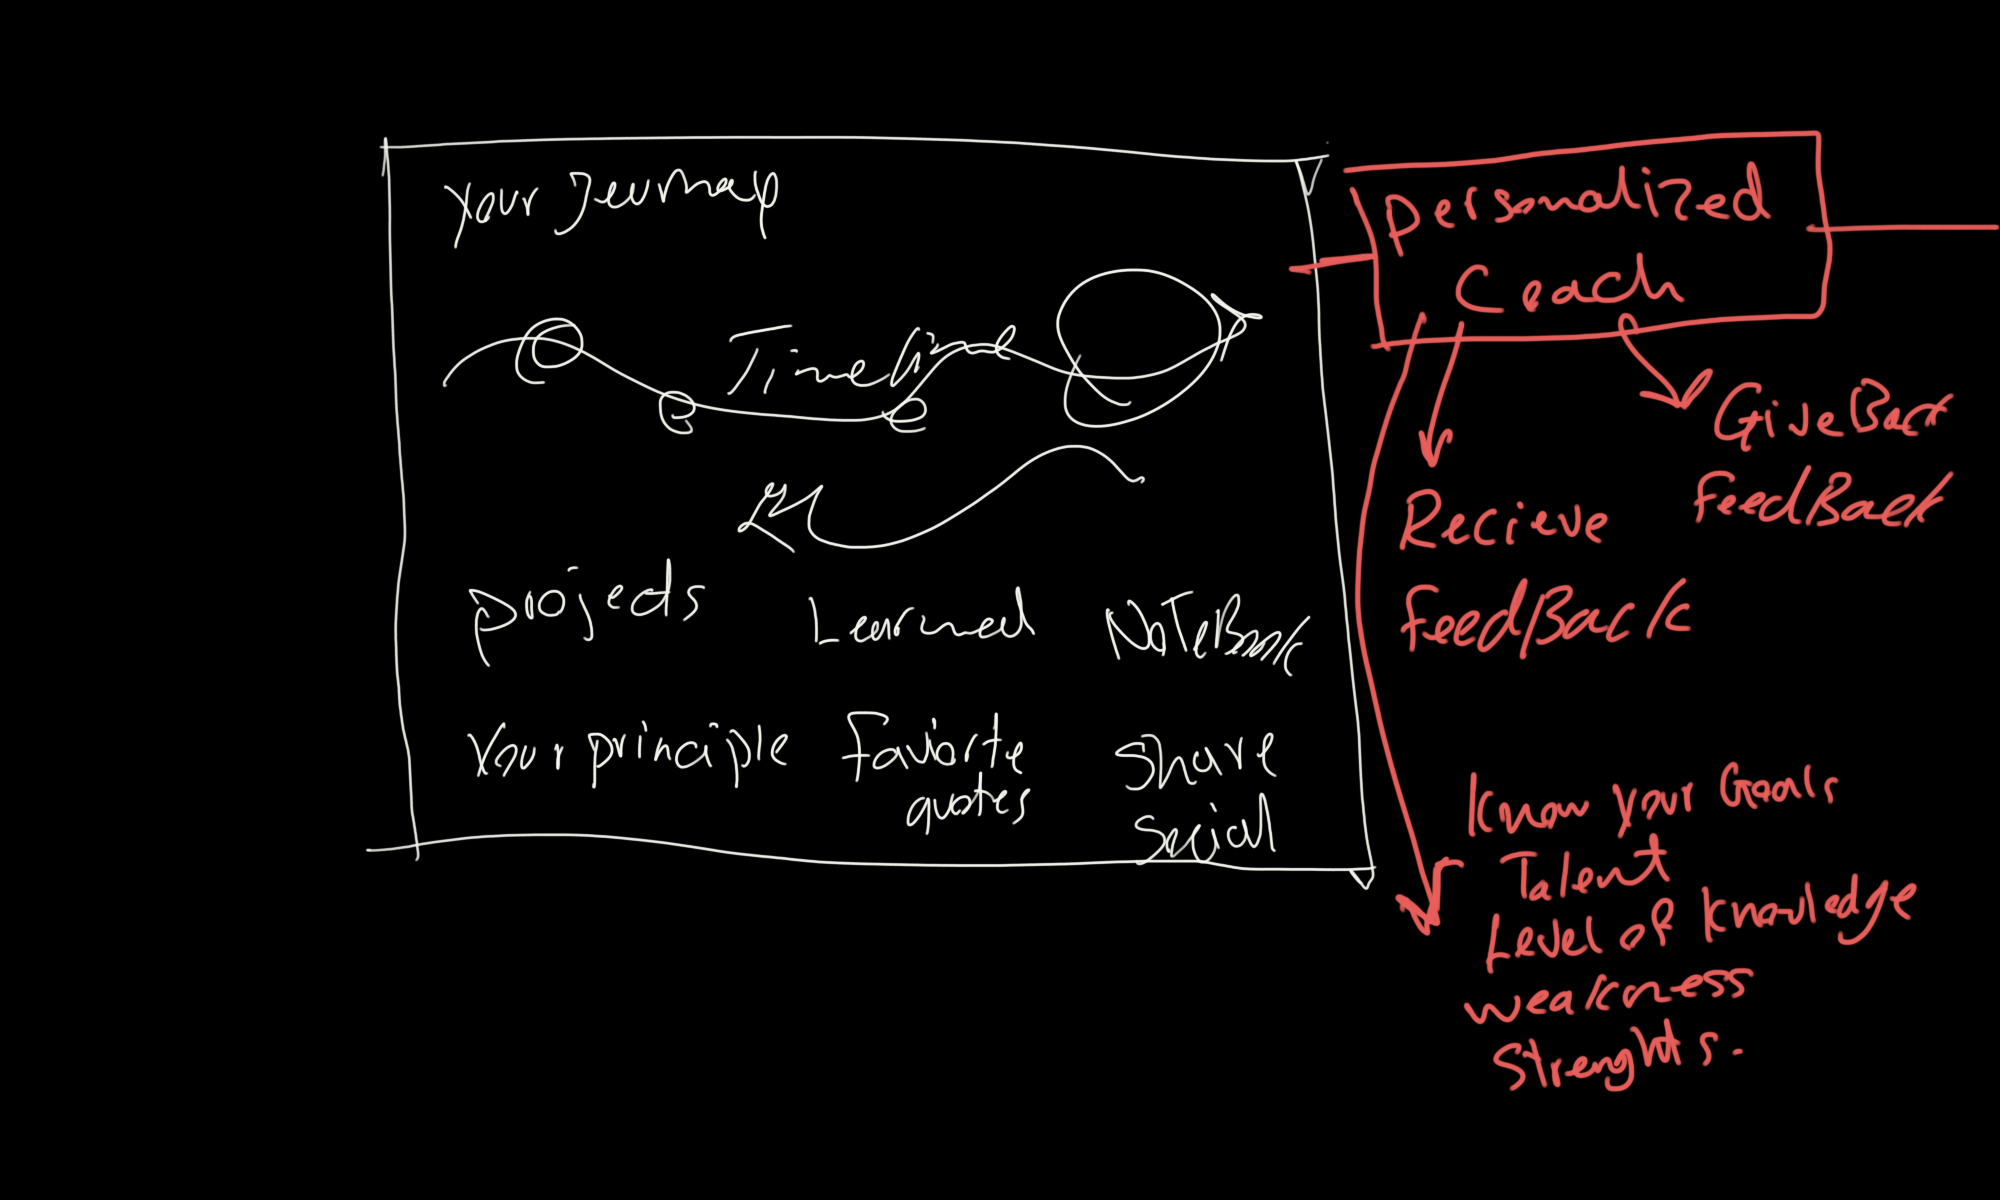 Your Journey
Timeline
projects Learned NoTeBook
Your principle Faviorte
quotes
Share
Social
personalized
Coach
GiveBack
FeedBack
Recieve
FeedBack
Know your Goals
Talent
Level of knowledge
weakness
Strenghts.